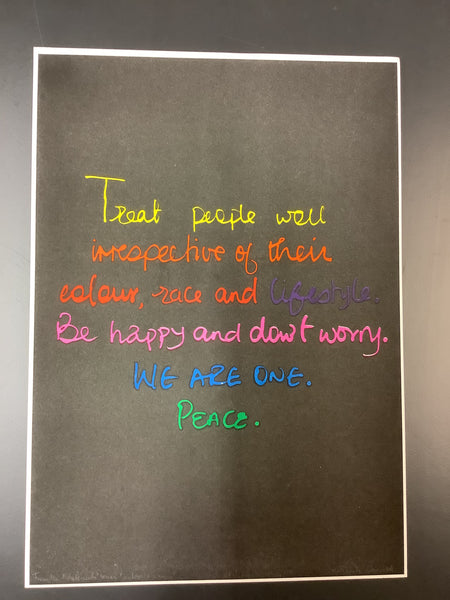 Treat people well
irrespective of their
colour, race and lifestyle.
Be happy and don't worry.
WE ARE ONE.
PEACE.